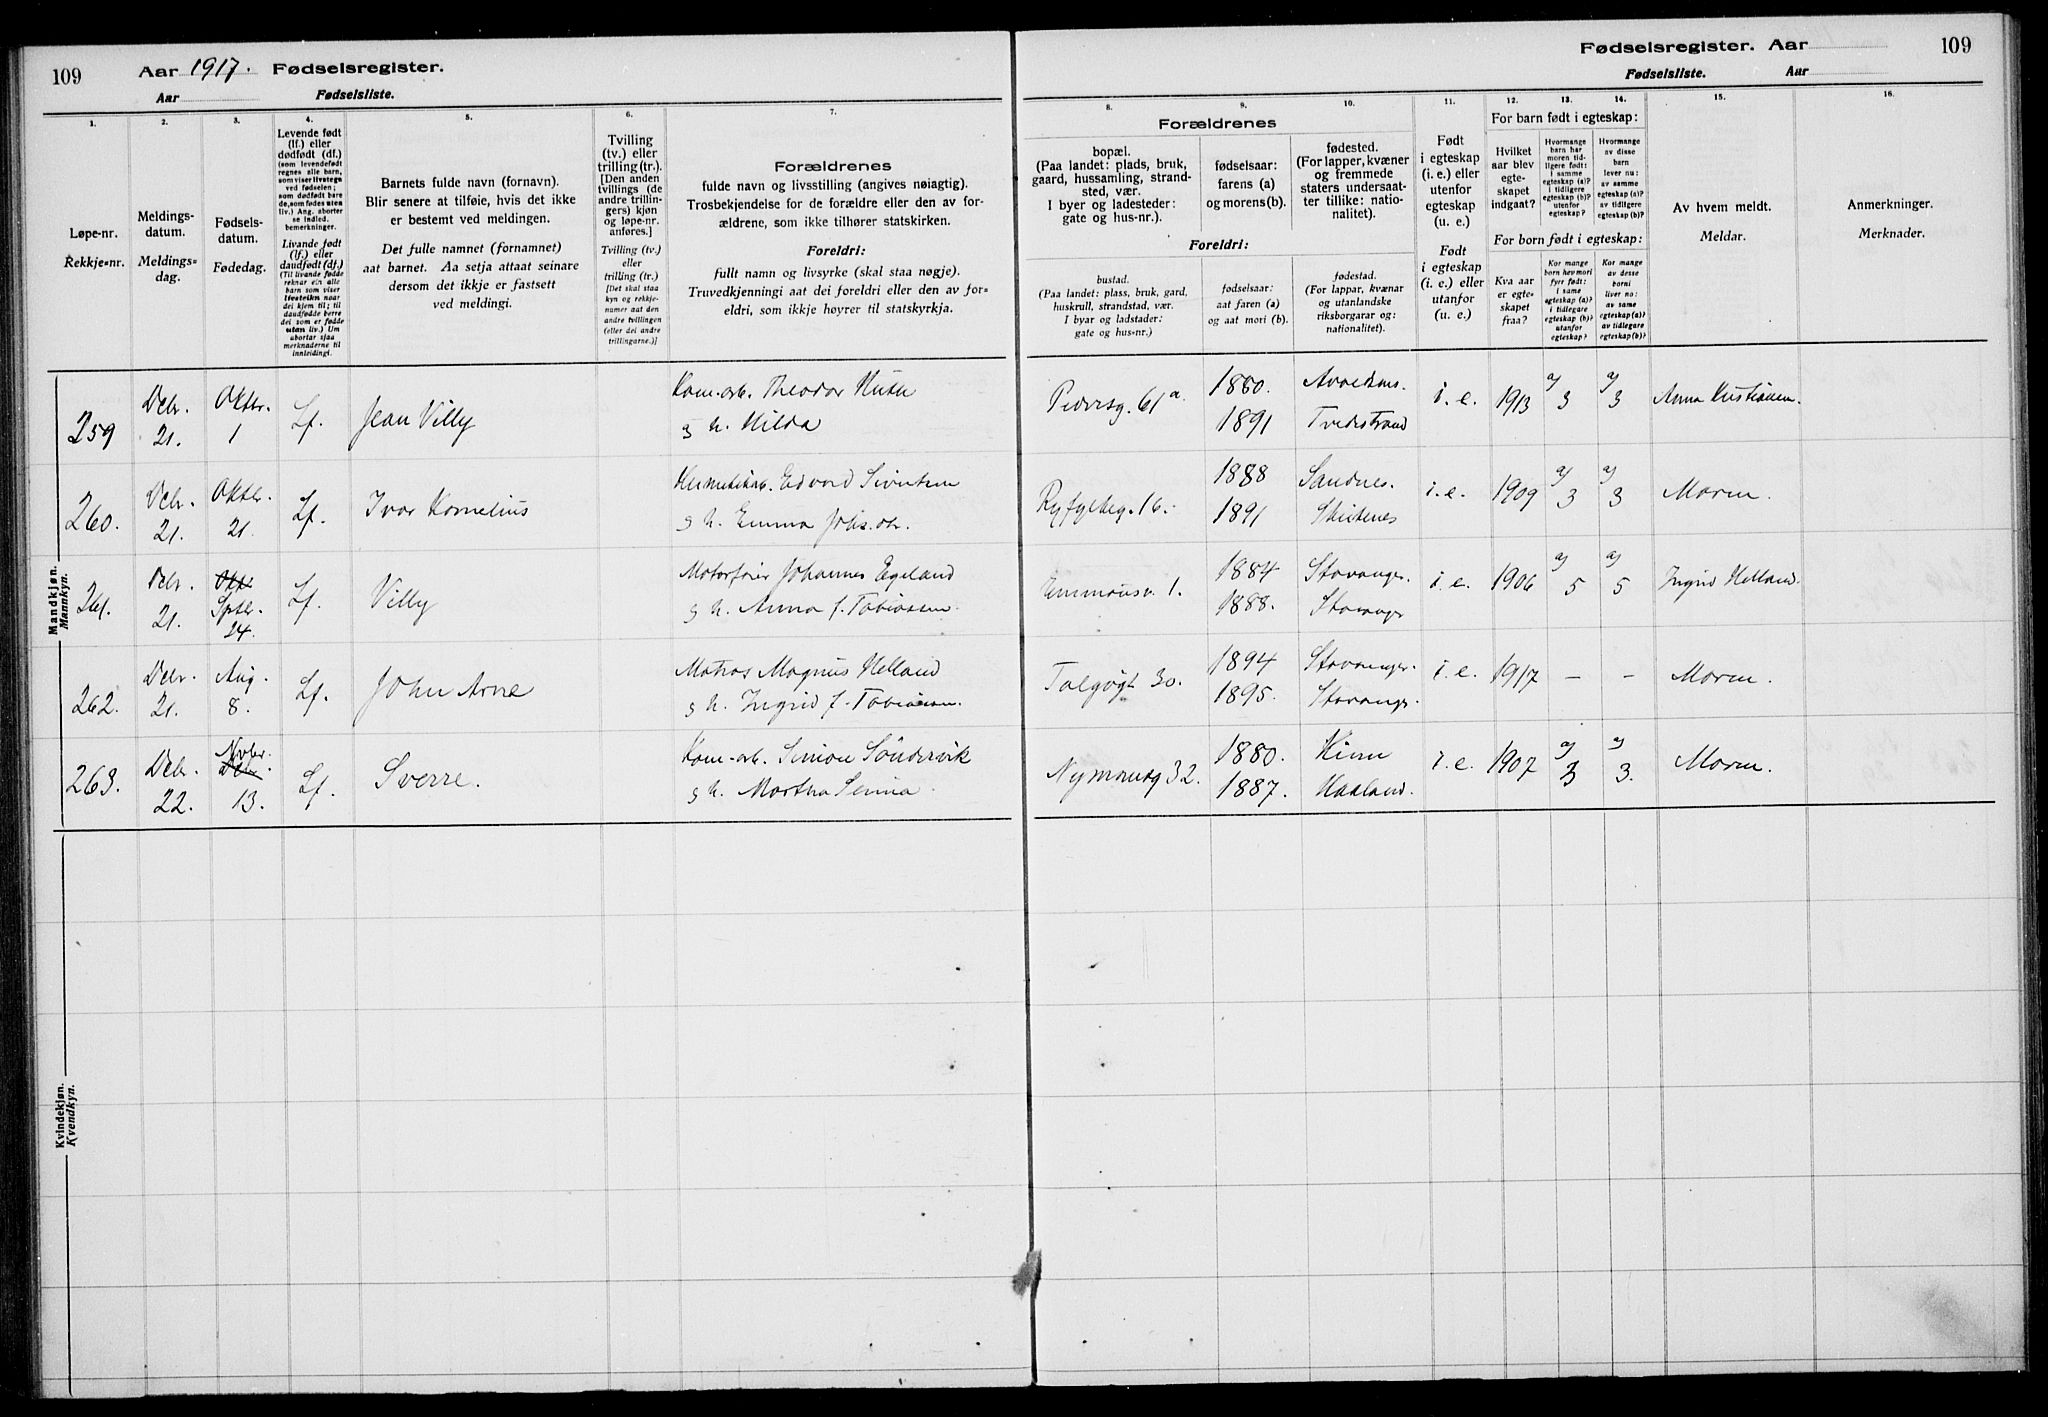 109
Aar 1917. Fødselsregister.
Aar Fødselsliste.
Fødselsregister. Aar
109
Fødselsliste. Aar
1.
Løpe-nr.
Rekkje=nr.
2.
Meldings-
datum.
Meldings=
dag.
3.
Fødsels-
datum.
Fødedag.
4.
Levende født
(lf.) eller
dødfødt (df.)
(som levendefødt
regnes alle barn,
som viser livstegn
ved fødselen;
som dødfødt bare
de, som fødes uten
liv.) Ang. aborter
se indled.
bemerkninger.
Livande født
(lf.) eller
daudfødt (df.)
(Til livande fødde
reknar ein alle
barn som viser
livsteikn naar
dei kjem til; til
daudfødde berre
dei som er fødde
utan liv.) Um
abortar sjaa
merknaderne til
innleidingi.
5.
Barnets fulde navn (fornavn).
Blir senere at tilføie, hvis det ikke
er bestemt ved meldingen.
Det fulle namnet (fornamnet)
aat barnet. Aa setja attaat seinare
dersom det ikkje er fastsett
ved meldingi.
6.
Tvilling
(tv.) eller
trilling (tr.).
[Den anden
tvillings (de
andre trillin-
gers) kjøn
og løpe-nr.
anføres.]
Tvilling (tv.)
eller
trilling (tr.)
[Det skal staa
kyn og rekkje-
numer aat den
andre tvillingen
(eller dei andre
trillingarne.)]
7.
Forældrenes
fulde navn og livsstilling (angives nøiagtig).
Trosbekjendelse for de forældre eller den av for-
ældrene, som ikke tilhører statskirken.
Foreldri:
fullt namn og livsyrke (skal staa nøgje).
Truvedkjenningi aat dei foreldri eller den av for=
eldri, som ikkje høyrer til statskyrkja.
Forældrenes
8.
bopæl.
(Paa landet: plads, bruk,
gaard, hussamling, strand-
sted, vær.
I byer og ladesteder:
gate og hus-nr.).
9.
fødselsaar:
farens (a)
og morens (b).
10.
fødested.
(For lapper, kvæner
og fremmede
staters undersaat-
ter tillike: natio-
nalitet).
Foreldri:
bustad.
(Paa landet: plass, bruk, gard,
huskrull, strandstad, vær.
I byar og ladstader:
gate og hus=nr.)
fødselsaar:
aat faren (a)
og aat mori (b).
fødestad.
(For lappar, kvænar
og utanlandske
riksborgarar og:
nationalitet).
11.
Født
i egteskap
(i. e.) eller
utenfor
egteskap
(u. e.)
Født
i egteskap
(i. e.) eller
utanfor
(u. e.)
12.
13.
14.
For barn født i egteskap:
Hvilket
aar blev
egte-
skapet
indgaat?
Hvormange
barn har
moren tid-
ligere født:
i samme
egteskap (a)?
i tidligere
egteskap (b)?
utenfor
egteskap?
Hvormange
av disse
barn
lever nu:
av samme
egteskap (a)?
av tidligere
egteskap (b)?
For born født i egteskap:
Kva aar
er egte=
skapet
fraa?
Kor mange
born hev mori
fyre født:
i same
egteskap (a)?
i tidlegare
egteskap (b)?
utanfor
egteskap?
Kor mange
av desse
borni
liver no:
av same
egteskap (a)?
av tidlegare
egteskap (b)?
15.
Av hvem meldt.
Meldar.
16.
Anmerkninger.
Merknader.
Mandkjøn.
Mannkyn.
259 Decbr. 21. Oktbr. 1 Lf. Jean Villy
Theodor
g h. Hilda
Pedersg. 61a. 1880. i. e. 1913 a/ 3 a/ 3 Anna
1891 Tvedestrand
260. Decbr. 21. Oktbr. 21. Lf. Ivar Kornelius
Edvard Sivertsen
g h. Emma
Ryfylkeg. 16. 1888 Sandnes. i. e. 1909 a/ 3 a/ 3 Moren.
1891 Skudenes
261. Decbr. 21. Okt. Sptbr. 24. Lf. Villy
Motorfører Johannes Egeland
g h. Anna f. Tobiassen.
Emmausv. 1. 1884 Stavanger. i. e. 1906 a/ 5 a/ 5 Ingrid Helland.
1888. Stavanger
262. Decbr. 21. Aug. 8. Lf. John Arne
Matros Magnus Helland
g h. Ingrid f. Tobiassen.
Talgøgt 30. 1894 Stavanger. i. e. 1917 – – Moren.
1895. Stavanger.
263. Decbr. 22. Novbr. Decbr. 13. Lf. Sverre.
Kom-arb. Simon Søndervik
g h. Martha Serina
Nymansg 32. 1880. Kinn i. e. 1907 a/ 3 a/ 3. Moren.
1887. Haaland.
Kvindekjøn.
Kvendkyn.